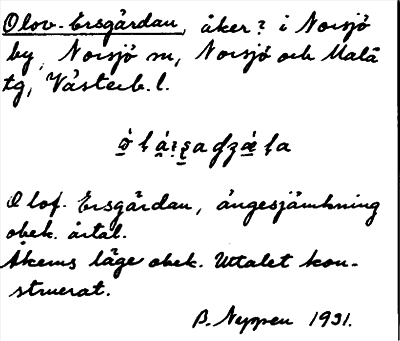 Olov-Ersgårdan, åker? i Norsjö
by, Norsjö sn, Norsjö och Malå
tg, Västerb. l.
Olof-Ersgårdan, ångesjämkning
obek. årtal.
Åkerns läge obek. Uttalet kon-
struerat.
B. Neppen 1931.